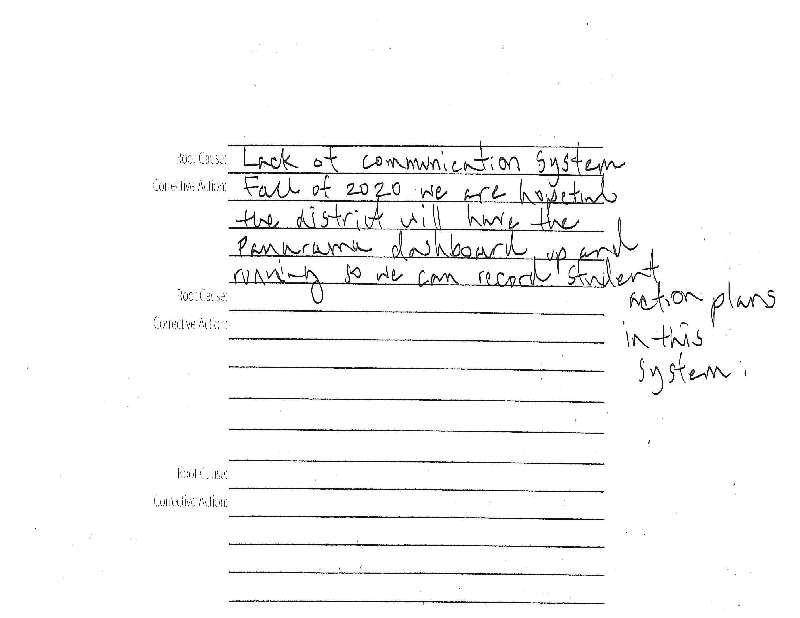 Root Cause: Lack of communication System
Corrective Action: Fall of 2020 we are hopeful
the district will have the
Panarama dashboard up and
running so we can record student
action plans
in this
system.
Root Cause:
Corrective Action:
Root Cause:
Corrective Action: